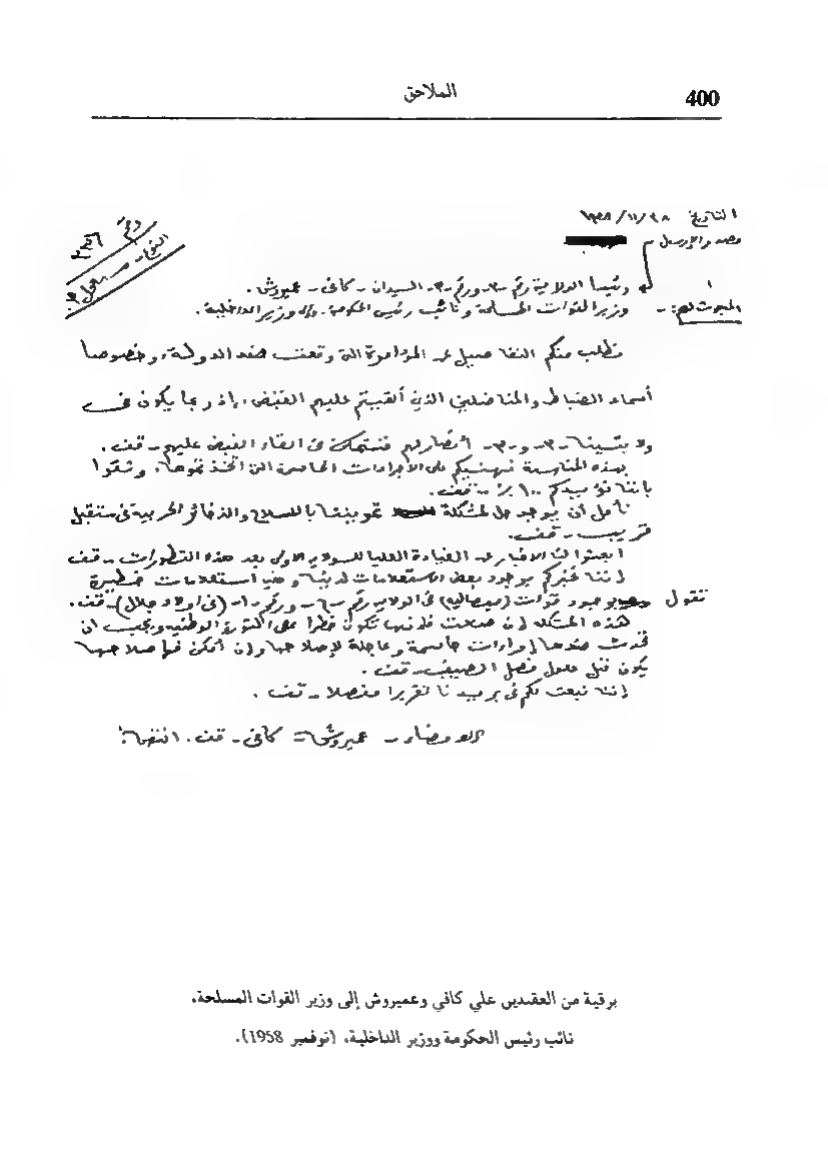 400
الملاحق
التاريخ ٢٨/١١/١٩٥٨
رقم ٢٣٥٦
رئيسا الولاية رقم -٢- ورقم -٣- السيدان - كافي - عميروش.
المبعوث لهم: - وزير القوات المسلحة ونائب رئيس الحكومة - وإلى وزير الداخلية.
نطلب منكم التفاصيل عن المؤامرة التي وقعت ضد الدولة، وخصوصا
أسماء الضباط والمناضلين الذين ألقيتم عليهم القبض، إذ ربما يكون في
ولايتينا -٢- و -٣- أنصارهم فنتمكن في القاء القبض عليهم - قف.
بهذه المناسبة نهنيكم على الأجراءات الحاسمة التي اتخذتموها، وثقوا
بإننا نؤيدكم ١٠٠ ٪ - قف.
نأمل أن يوجد حل لمشكلة تمويننا بالسلاح والذخائر الحربية في مستقبل
قريب - قف.
ابعثوا لنا الاخبار عن القيادة العليا للولاية الاولى بعد هذه التطورات - قف
إننا نخبركم بوجود بعض الاستعلامات لدينا وهي استعلامات خطيرة
تقول بوجود قوات (ميصالية) في الولاية رقم -٦- ورقم -١- (في اولاد جلال) - قف.
هذه المشكلة إن صحت فإنها تكون خطرا على الثورة الوطنية ويجب ان
تحدث ضدها إجراءات حاسمة وعاجلة لإصلاحها وإن أمكن فإصلاحها
يكون قبل حلول فصل الصيف - قف.
إننا نبعث لكم في بريدنا تقريرا مفصلا - قف.
الامضاء - عميروش = كافي - قف. انتهى
برقية من العقيدين علي كافي وعميروش إلى وزير القوات المسلحة،
نائب رئيس الحكومة ووزير الداخلية، (نوفمبر 1958).